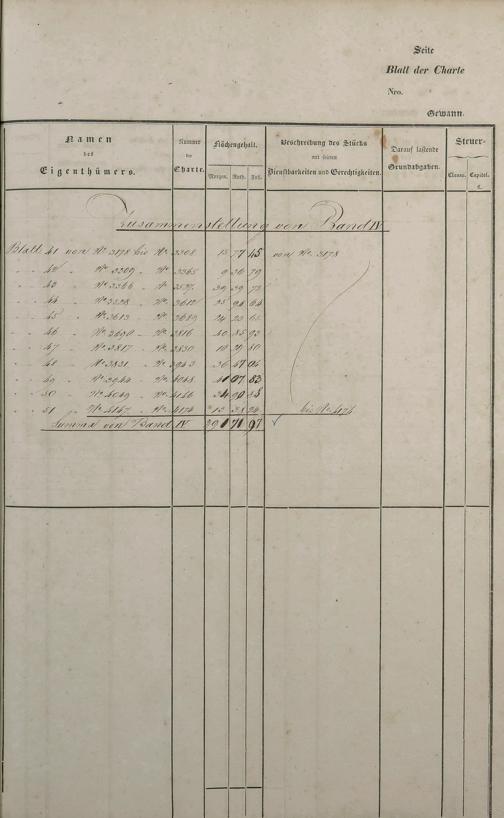 Seite
Blatt der Charte
Nro.
Gewann.
Namen des Eigenthümers.
Nummer der Charte.
Flächengehalt.
Morgen. Ruth. Fuß.
Beschreibung des Stücks mit seinen Dienstbarkeiten und Gerechtigkeiten.
Darauf lastende Grundabgaben.
Steuer-
Classe. Capital.
Zusammenstellung von Band IV
Blatt 41 von No. 3178 bis No. 3308 15 77 45 von No. 3178
42 No. 3309 No. 3365 9 36 79
43 No. 3366 No. 3527 39 39
44 No. 3528 No. 3612 25 94 64
45 No. 3613 No. 3689 24 23
46 No. 3690 No. 3816 40 85 92
47 No. 3817 No. 3830
48 No. 3831 No. 3943 36 47
49 No. 3944 No. 4048 07 83
50 No. 4049 No. 4146 90
51 No. 4147 No. 4174 bis No. 4174
Summa von Band IV 291 71 97